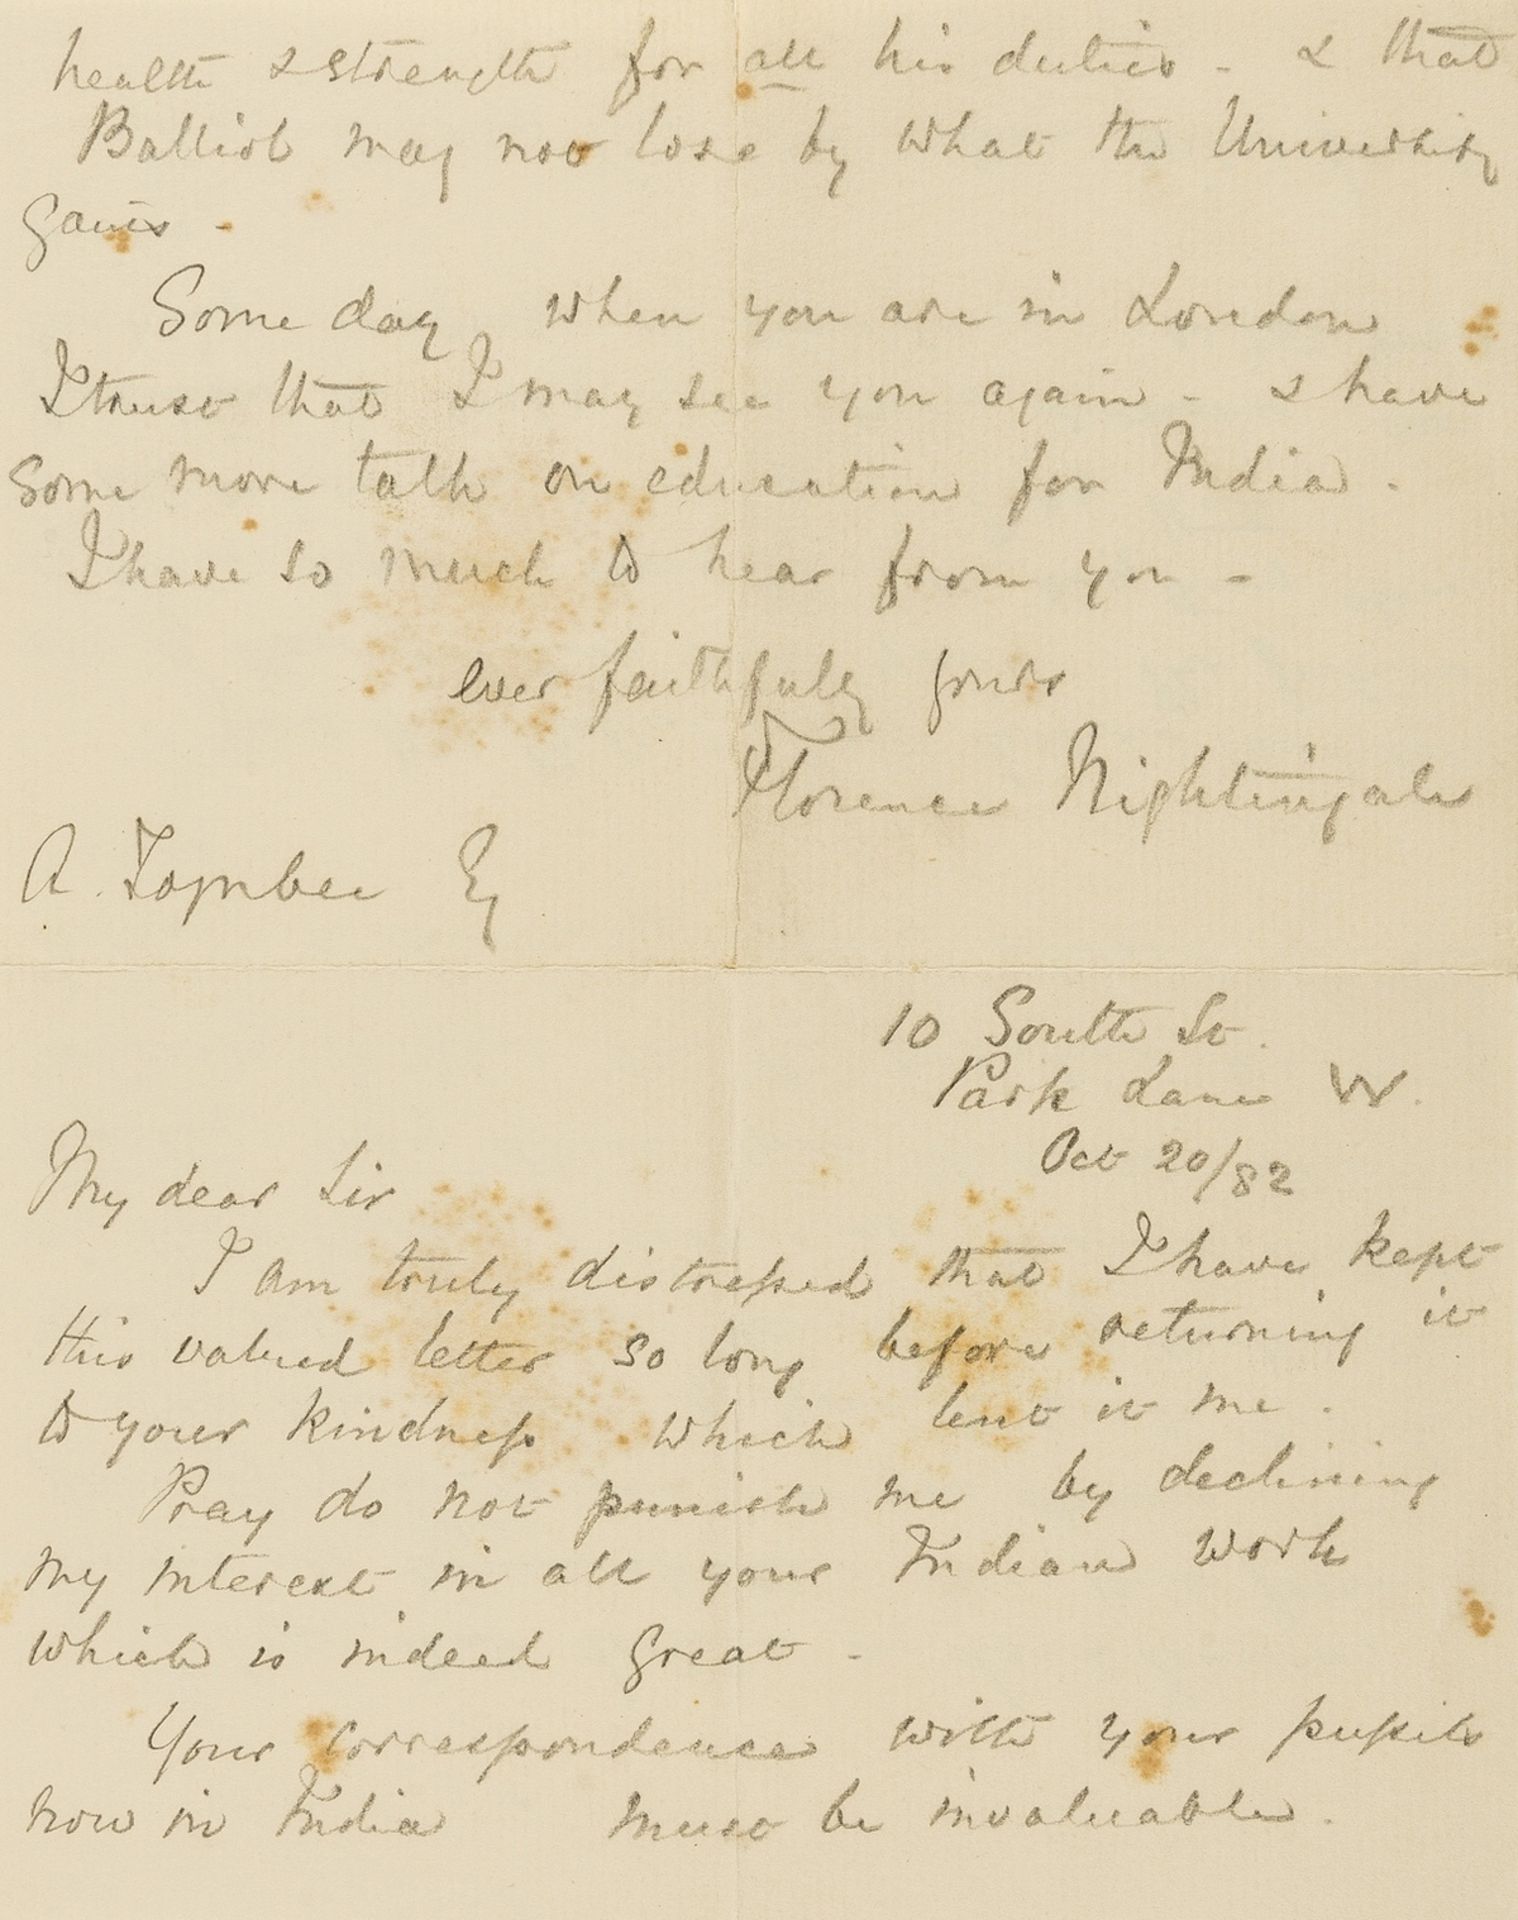 health & strength for all his duties - & that
Balliol may not lose by what the University
gains -
Some day when you are in London
I trust that I may see you again - & have
some more talk on education for India.
I have so much to hear from you -
ever faithfully yours
Florence Nightingale
A. Toynbee Esq
10 South St.
Park Lane W.
Oct 20/82
My dear Sir
I am truly distressed that I have kept
this valued letter so long before returning it
to your kindness which lent it me.
Pray do not punish me by declining
my interest in all your Indian work
which is indeed great -
Your correspondence with your pupils
now in India must be invaluable.